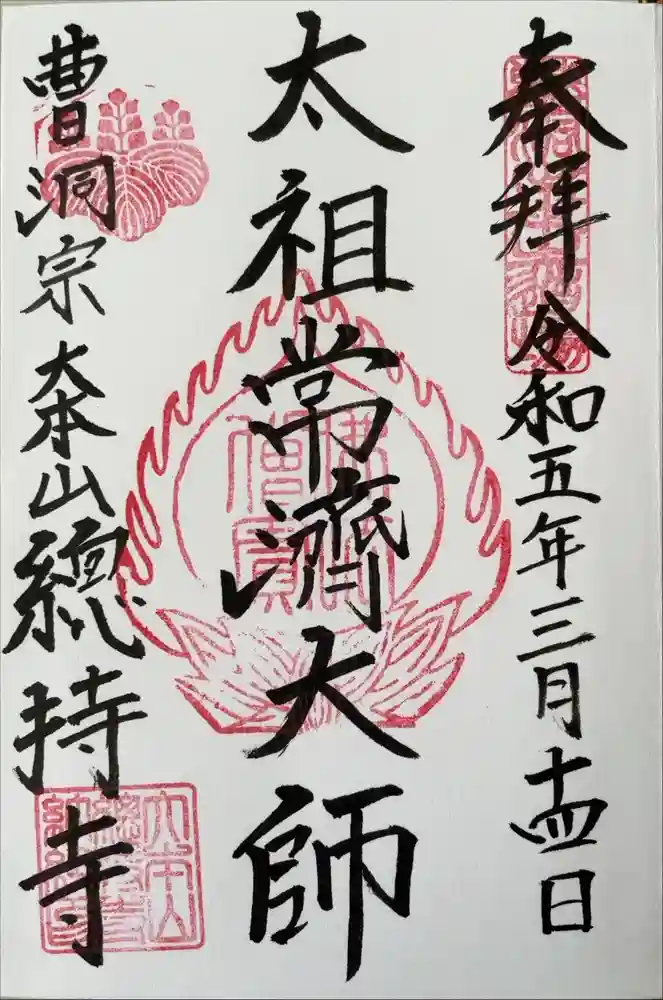 奉拝 令和五年三月十四日
太祖常濟大師
曹洞宗大本山總持寺